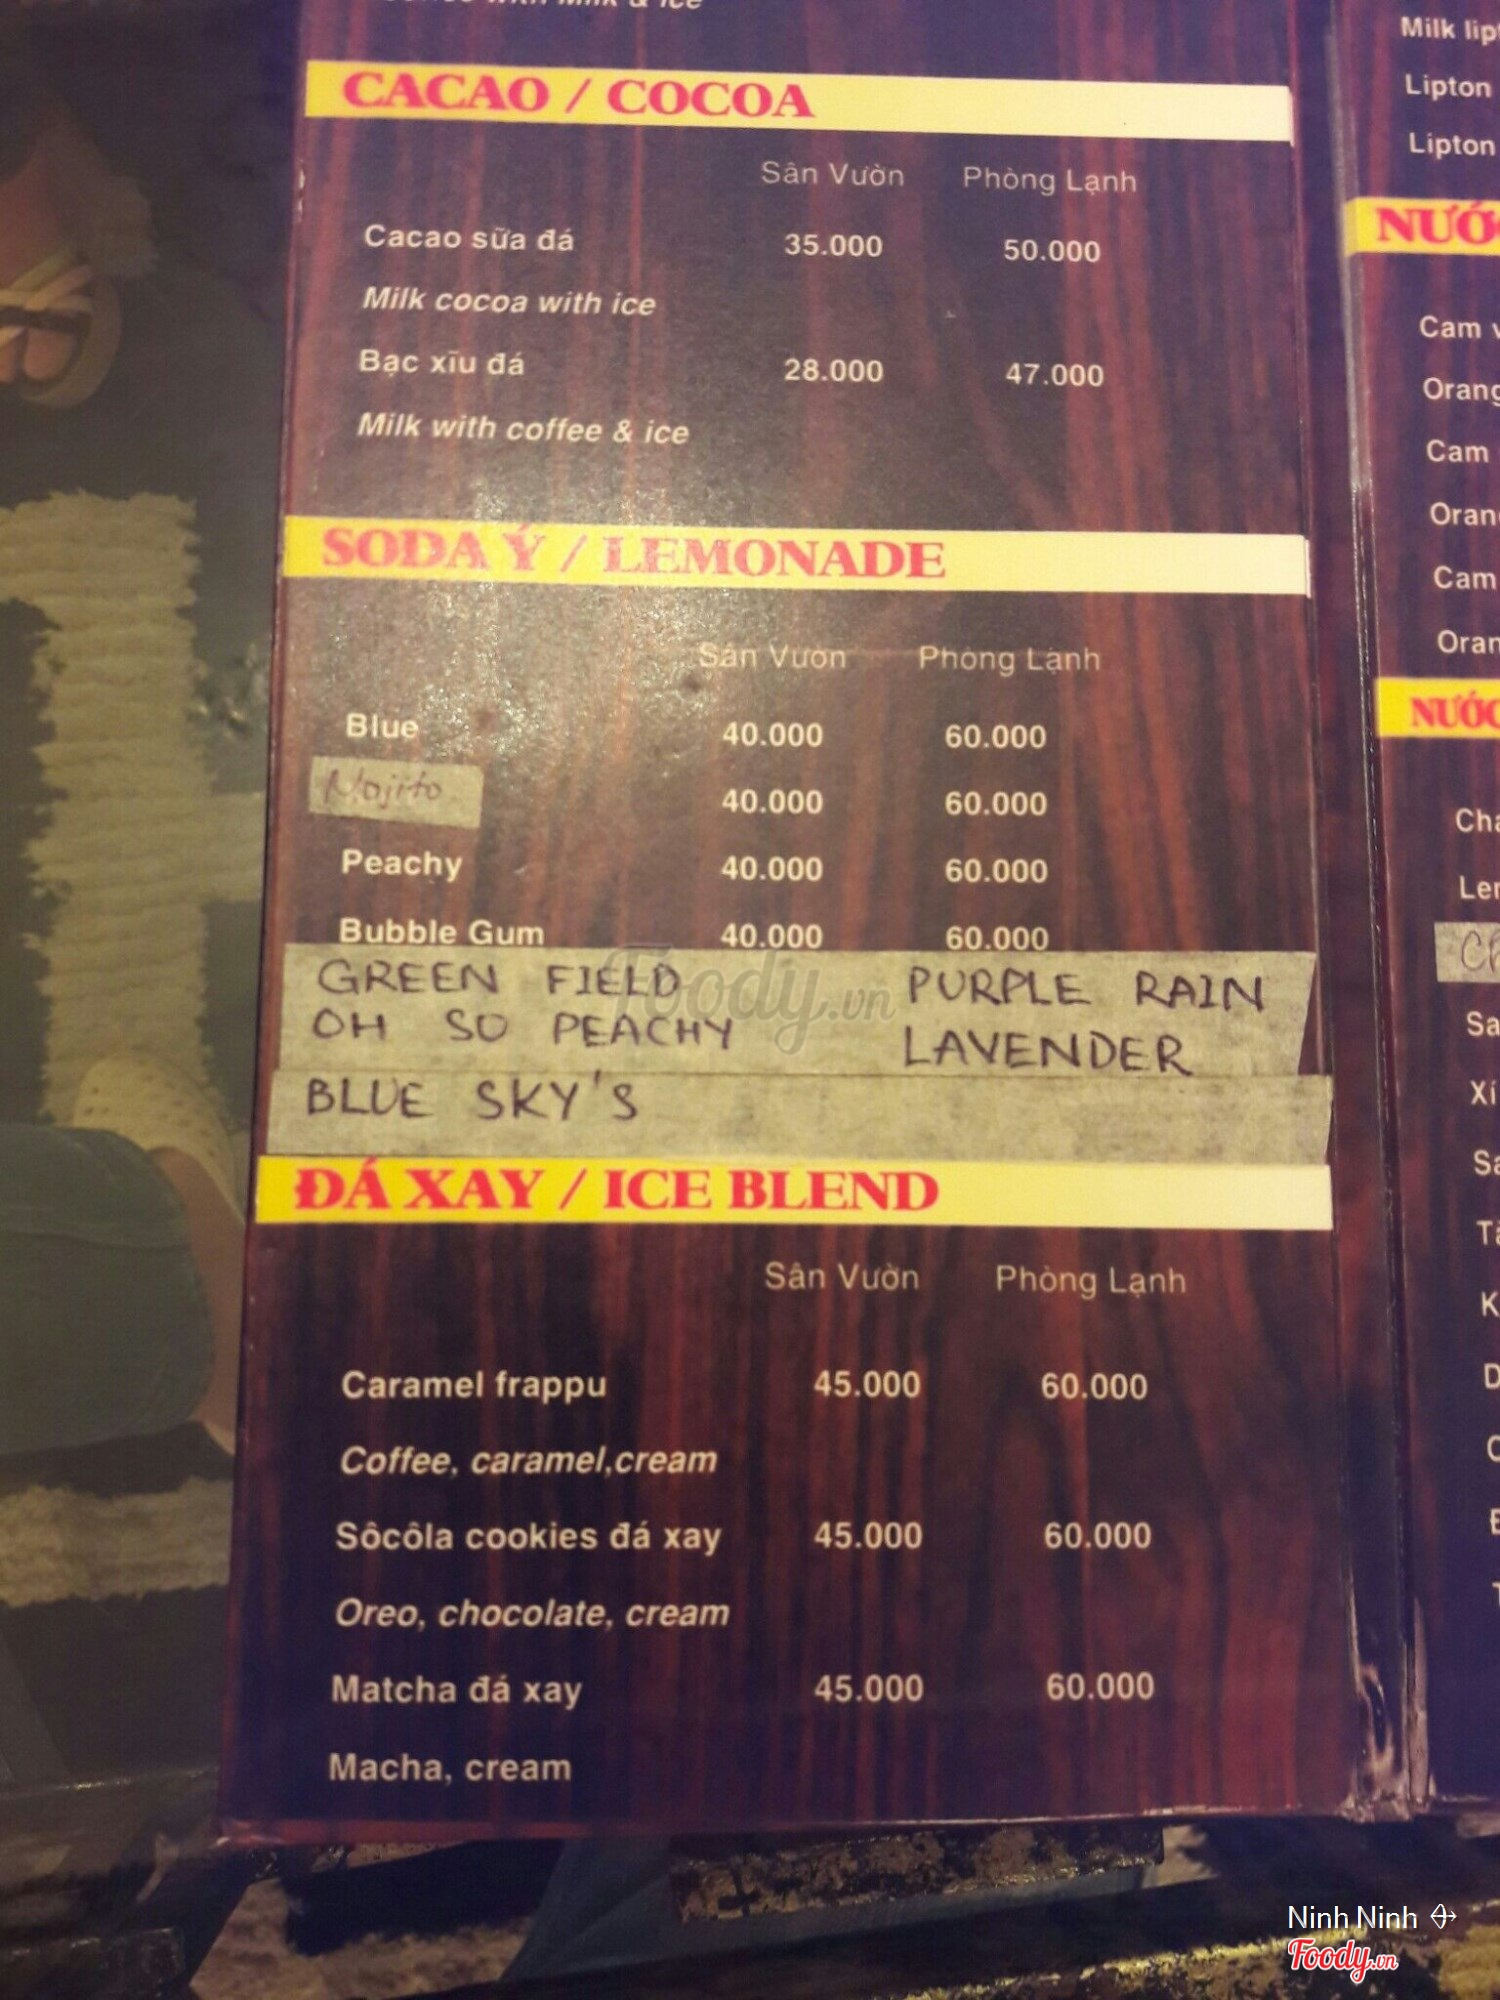 CACAO / COCOA
Sân Vườn Phòng Lạnh
Cacao sữa đá 35.000 50.000
Milk cocoa with ice
Bạc xĩu đá 28.000 47.000
Milk with coffee & ice
SODA Ý / LEMONADE
Sân Vườn Phòng Lạnh
Blue 40.000 60.000
Mojito 40.000 60.000
Peachy 40.000 60.000
Bubble Gum 40.000 60.000
GREEN FIELD PURPLE RAIN
OH SO PEACHY LAVENDER
BLUE SKY'S
Foody.vn
ĐÁ XAY / ICE BLEND
Sân Vườn Phòng Lạnh
Caramel frappu 45.000 60.000
Coffee, caramel,cream
Sôcôla cookies đá xay 45.000 60.000
Oreo, chocolate, cream
Matcha đá xay 45.000 60.000
Macha, cream
Milk
Lipton
Lipton
Cam
Cam
Cam
Ninh Ninh
Foody.vn